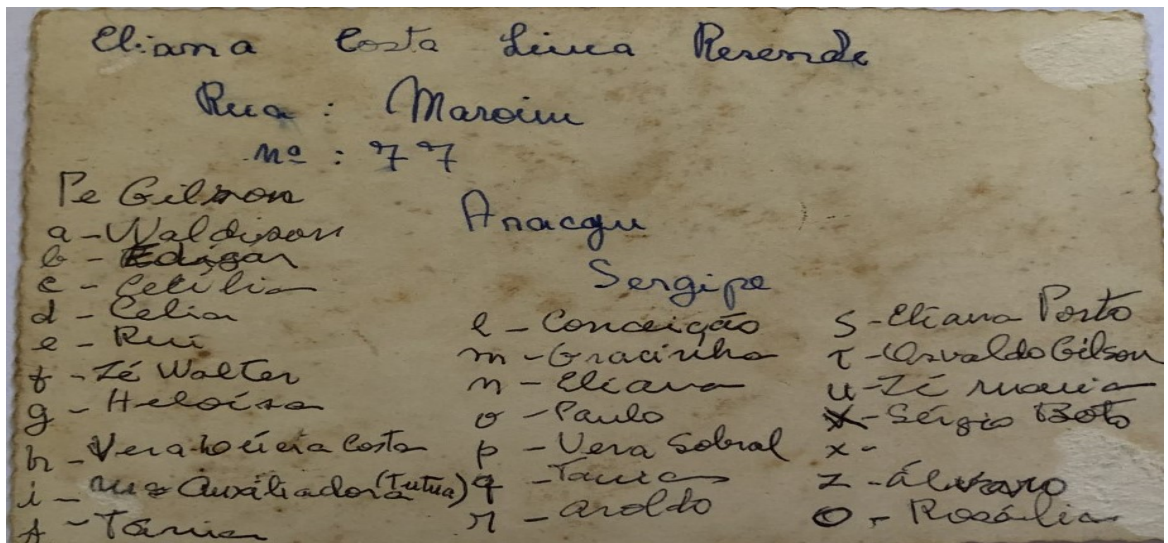 Eliana Costa Lima Resende
Rua : Maroim
nº : 77
Aracaju
Sergipe
Pe Gilson
a - Waldison
b - Edigar
c - Cecília
d - Celia
e - Rui
f - Zé Walter
g - Heloísa
h - Vera Lúcia Costa
i - Mª Auxiliadora (Tutua)
- Tânia
l - Conceição
m - Gracinha
n - Eliana
o - Paulo
p - Vera Sobral
q - Tania
r - aroldo
S - Eliana Porto
t - Osvaldo Gilson
u - Zé maria
- Sérgio Boto
x -
z - álvaro
O - Rosália